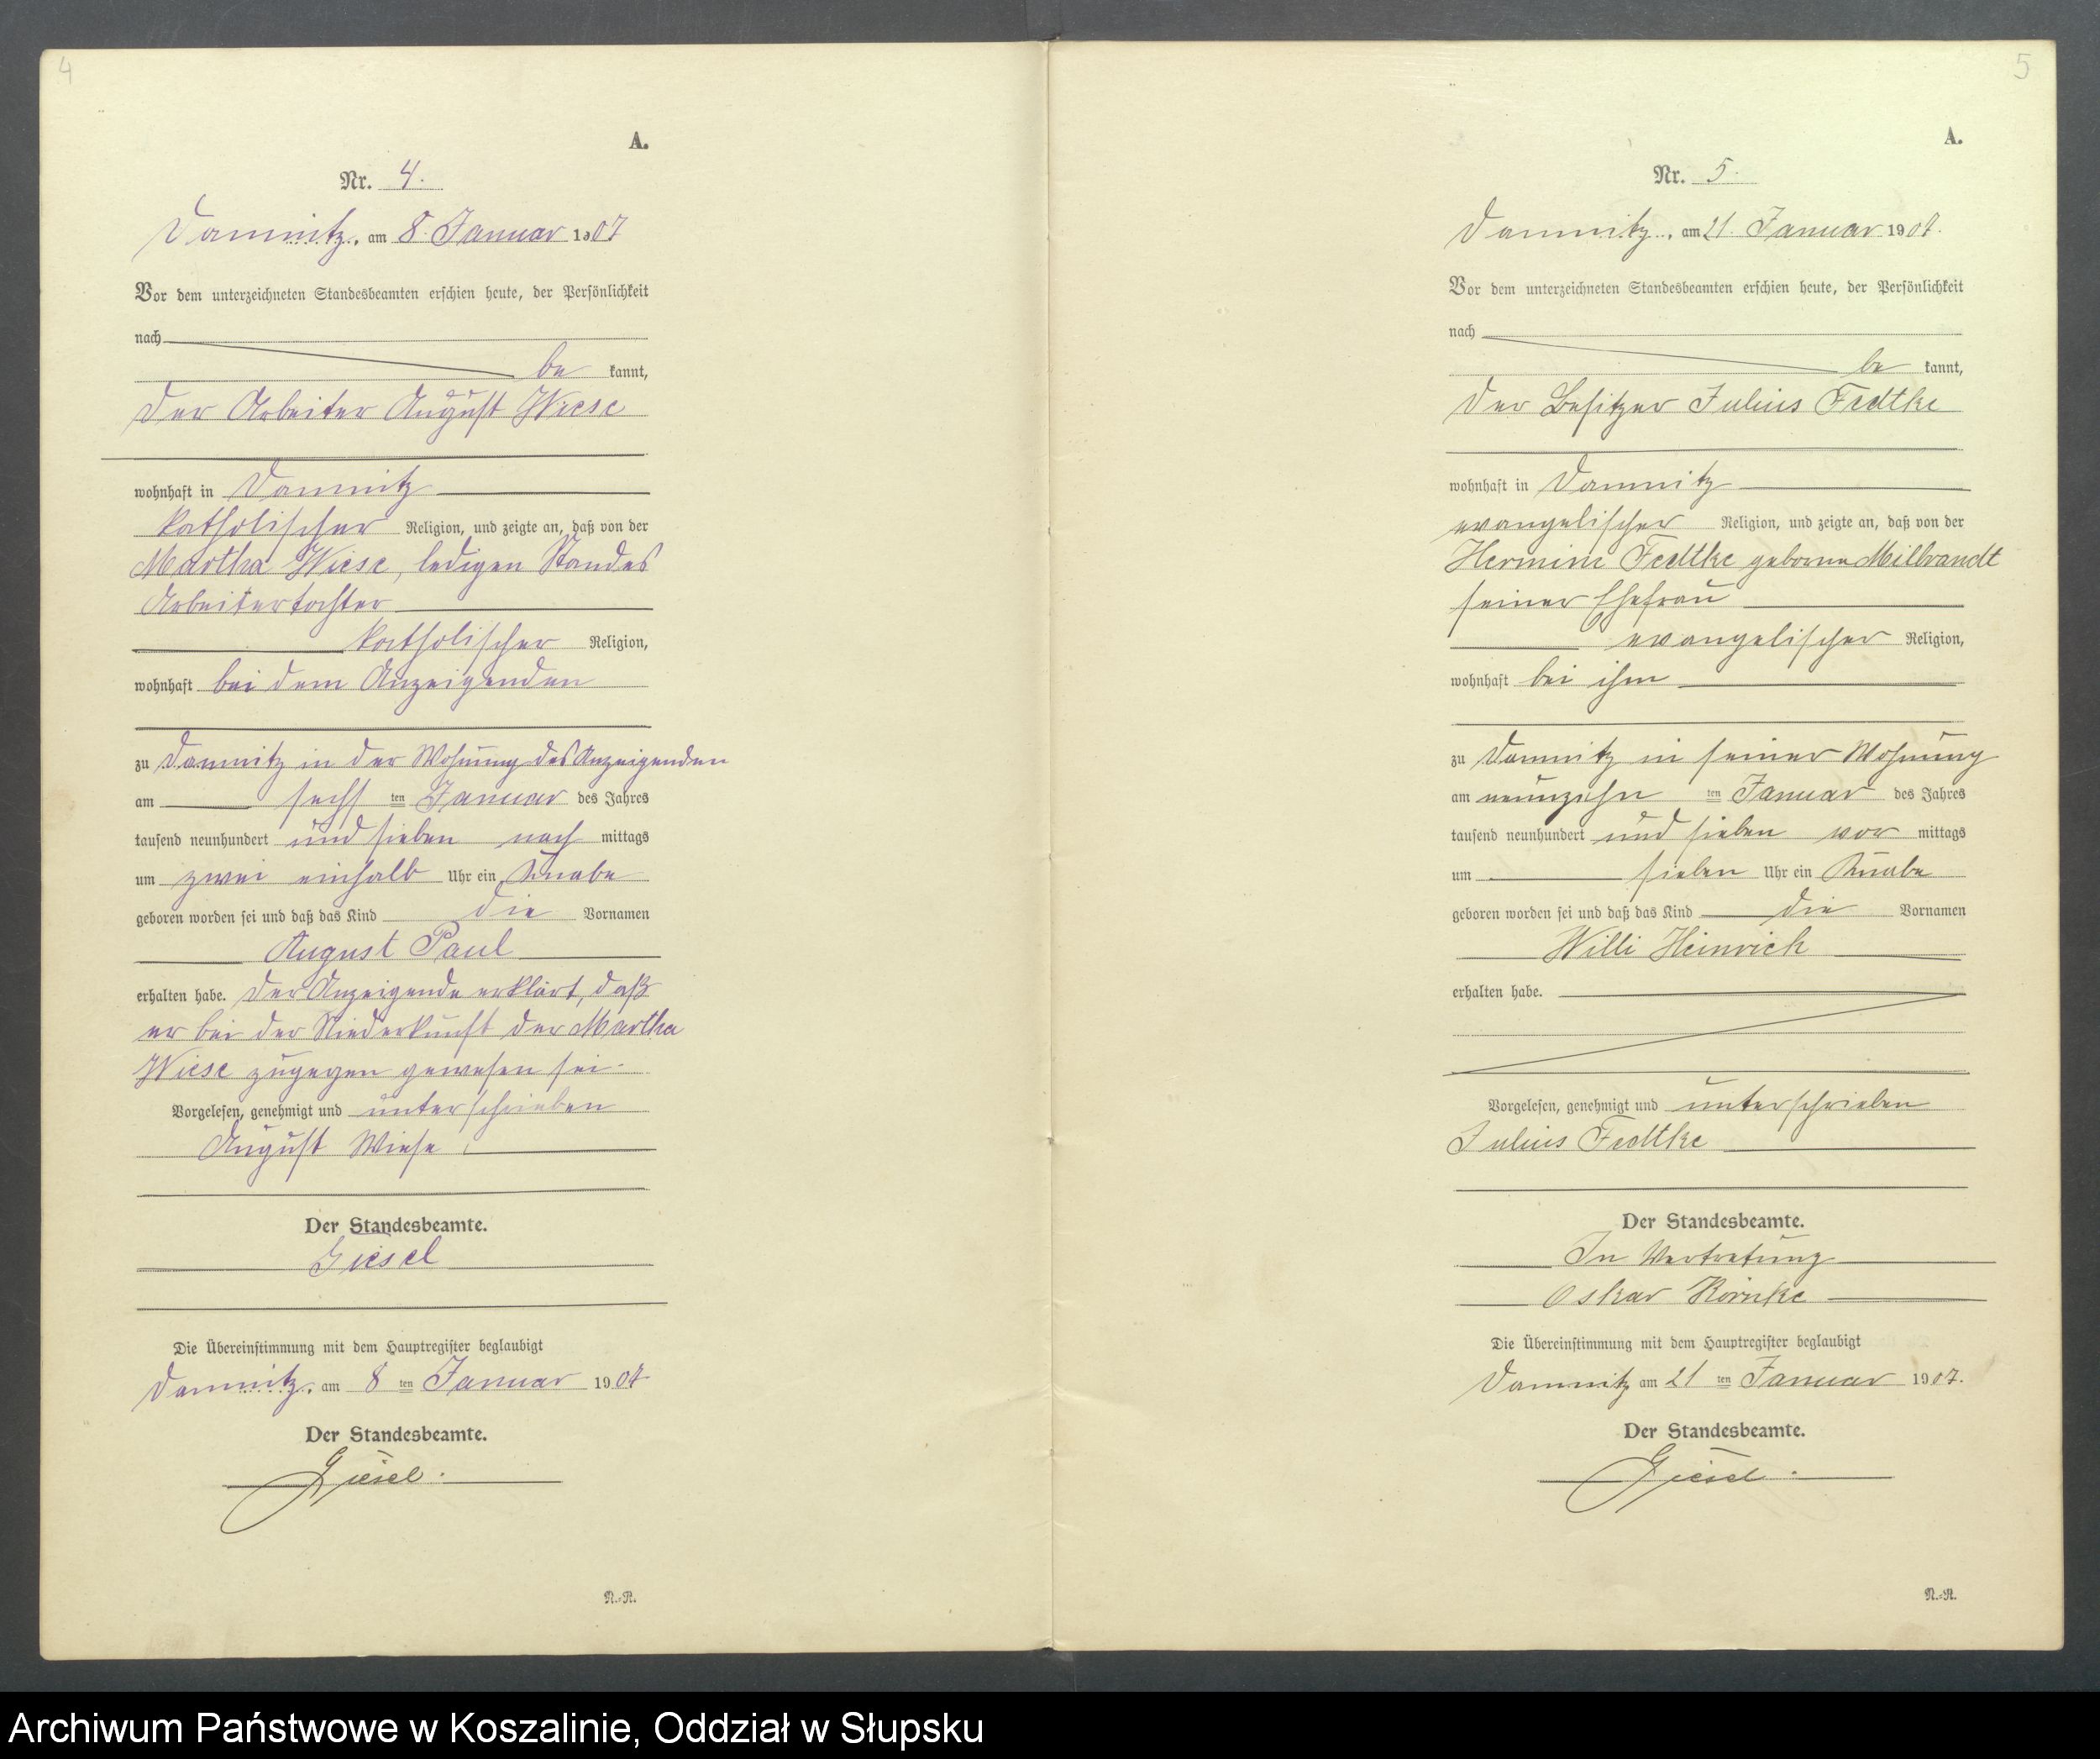 4
A.
Nr. 4.
Damnitz, am 8. Januar 1907
Vor dem unterzeichneten Standesbeamten erschien heute, der Persönlichkeit
nach
be kannt,
der Arbeiter August Wiese
wohnhaft in Damnitz
katholischer Religion, und zeigte an, daß von der
Martha Wiese, ledigen Standes
Arbeitertochter
katholischer Religion,
wohnhaft bei dem Anzeigenden
zu Damnitz in der Wohnung des Anzeigenden
am sechs ten Januar des Jahres
tausend neunhundert und sieben nach mittags
um zwei einhalb Uhr ein Knabe
geboren worden sei und daß das Kind die Vornamen
August Paul
erhalten habe. Der Anzeigende erklärt, daß
er bei der Niederkunft der Martha
Wiese zugegen gewesen sei.
Vorgelesen, genehmigt und unterschrieben
August Wiese
Der Standesbeamte.
Giesel
Die Übereinstimmung mit dem Hauptregister beglaubigt
Damnitz, am 8 ten Januar 1907
Der Standesbeamte.
Giesel.
N.-R.
5
A.
Nr. 5.
Damnitz, am 21. Januar 1907.
Vor dem unterzeichneten Standesbeamten erschien heute, der Persönlichkeit
nach
be kannt,
der Besitzer Julius Fedtke
wohnhaft in Damnitz
evangelischer Religion, und zeigte an, daß von der
Hermine Fedtke geborne Milbrandt
seiner Ehefrau
evangelischer Religion,
wohnhaft bei ihm
zu Damnitz in seiner Wohnung
am neunzehn ten Januar des Jahres
tausend neunhundert und sieben vor mittags
um sieben Uhr ein Knabe
geboren worden sei und daß das Kind die Vornamen
Willi Heinrich
erhalten habe.
Vorgelesen, genehmigt und unterschrieben
Julius Fedtke
Der Standesbeamte.
In Vertretung
Oskar Körnke
Die Übereinstimmung mit dem Hauptregister beglaubigt
Damnitz am 21 ten Januar 1907.
Der Standesbeamte.
Giesel.
N.-R.
Archiwum Państwowe w Koszalinie, Oddział w Słupsku